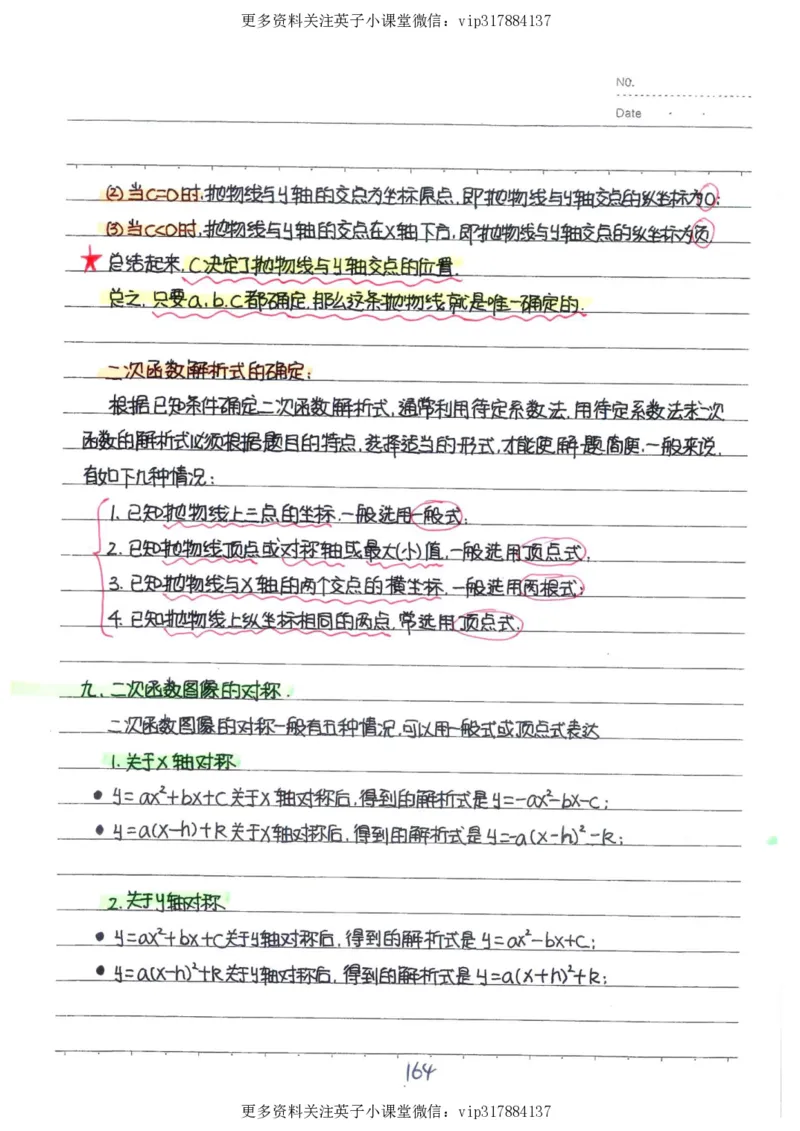 更多资料关注英子小课堂微信：vip317884137
NO.
Date
(2)当C=0时,抛物线与y轴的交点为坐标原点,即抛物线与y轴交点的纵坐标为0;
(3)当C<0时,抛物线与y轴的交点在X轴下方,即抛物线与y轴交点的纵坐标为负
★总结起来,C决定了抛物线与y轴交点的位置.
总之,只要a,b,C都确定,那么这条抛物线就是唯一确定的.
二次函数解析式的确定:
根据已知条件确定二次函数解析式,通常利用待定系数法.用待定系数法求二次
函数的解析式必须根据题目的特点,选择适当的形式,才能使解题简便.一般来说,
有如下几种情况:
1.已知抛物线上三点的坐标,一般选用一般式;
2.已知抛物线顶点或对称轴或最大(小)值,一般选用顶点式;
3.已知抛物线与X轴的两个交点的横坐标,一般选用两根式;
4.已知抛物线上纵坐标相同的两点,常选用顶点式.
九、二次函数图像的对称.
二次函数图像的对称一般有五种情况,可以用一般式或顶点式表达
1.关于X轴对称
• y=ax²+bx+c关于X轴对称后,得到的解析式是y=-ax²-bx-c;
• y=a(x-h)+k关于X轴对称后,得到的解析式是y=-a(x-h)²-k;
2.关于y轴对称
• y=ax²+bx+c关于y轴对称后,得到的解析式是y=ax²-bx+c;
• y=a(x-h)²+k关于y轴对称后,得到的解析式是y=a(x+h)²+k;
164
更多资料关注英子小课堂微信：vip317884137